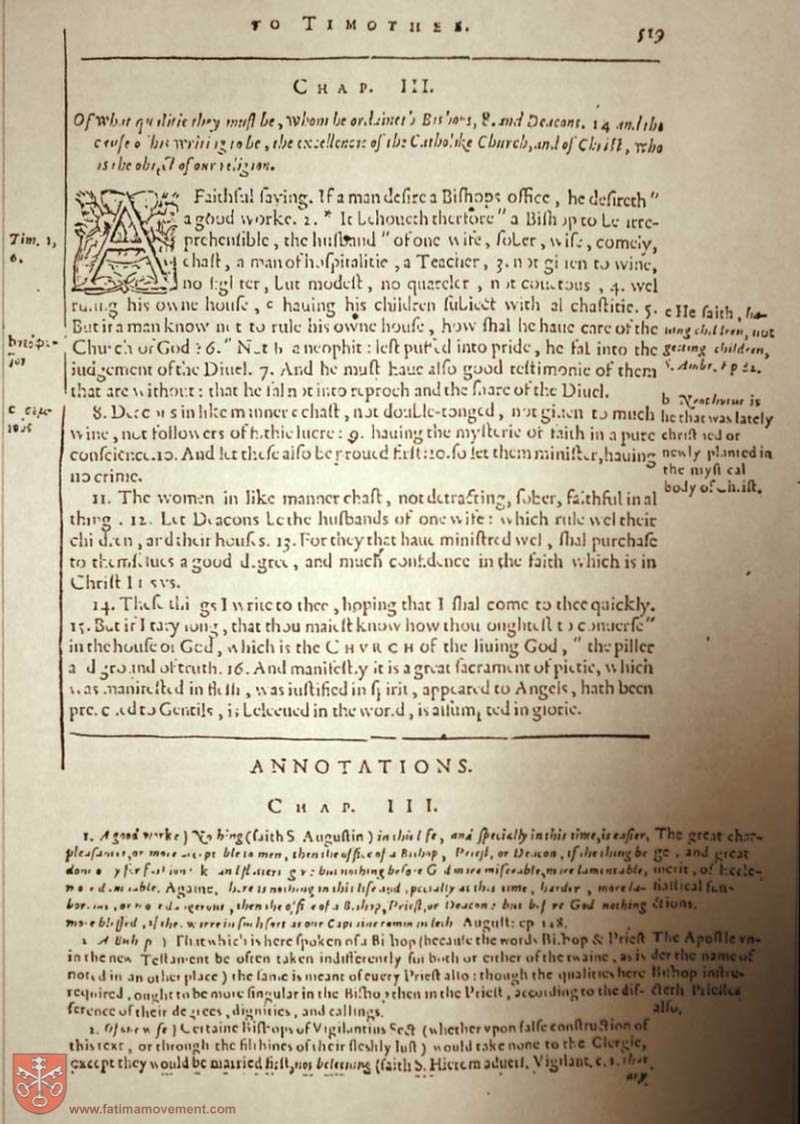 TO TIMOTHEE.
519
CHAP. III.
Of what qualitie they must be, whom he ordaineth Bishops, 8. and Deacons. 14 and the
cause of his writing to be, the excellencie of the Catholike Church, and of Christ, who
is the obiect of our religion.
A Faithful saying. If a man desire a Bishops office, he desireth "
a good worke. 2. * It behoueth therfore " a Bishop to be irre-
prehensible, the husband " of one wife, sober, wise, comely,
chast, a man of hospitalitie, a Teacher, 3. not giuen to wine,
no fighter, but modest, no quareler, not couetous, 4. wel
ruling his owne house, c hauing his children subiect with al chastitie. 5.
But if a man know not to rule his owne house, how shal he haue care of the
Church of God? 6. " Not b a neophit: lest puffed into pride, he fal into the
iudgement of the Diuel. 7. And he must haue also good testimonie of them
that are without: that he fal not into reproch and the snare of the Diuel.
8. Deacons in like manner chast, not double-tonged, not giuen to much
wine, not followers of filthie lucre: 9. hauing the mysterie of faith in a pure
conscience. 10. And let these also be proued first: so let them minister, hauing
no crime.
11. The women in like manner chast, not detracting, sober, faithful in al
things. 12. Let Deacons be the husbands of one wife: which rule wel their
children, and their houses. 13. For they that haue ministred wel, shal purchase
to themselues a good degree, and much confidence in the faith which is in
Christ IESVS.
14. These things I write to thee, hoping that I shal come to thee quickly.
15. But if I tary long, that thou maiest know how thou oughtest to conuerse "
in the house of God, which is the CHVRCH of the liuing God, " the piller
and ground of truth. 16. And manifestly it is a great sacrament of pietie, which
was manifested in flesh, was iustified in spirit, appeared to Angels, hath been
preached to Gentils, is beleeued in the world, is assumpted in glorie.
Tim. 1,
6.
c He saith, ha-
uing children, not
getting children,
S. Ambr. ep 82.
b Neophytus is
he that was lately
christened or
newly planted in
the mystical
body of Christ.
ANNOTATIONS.
CHAP. III.
1. A good worke) Nothing (saith S. Augustin) in this life, and specially in this time, is easier,
pleasanter, or more acceptable to men, then the office of a Bishop, Priest, or Deacon, if the thing be
done but nothing before God more miserable, more lamentable,
more damnable. Againe, there is nothing in this life and specially at this time, harder, more la-
borious, or more dangerous, then the office of a Bishop, Priest, or Deacon: but before God nothing
more blessed, if they warre in such sort as our Captaine commandeth August. ep 148.
2. A Bishop) That which is here spoken of a Bishop (because the words Bishop & Priest
in the new Testament be often taken indifferently for both or either of the twaine, as is
noted in an other place) the same is meant of euery Priest also: though the qualities here
required, ought to be more singular in the Bishop then in the Priest, according to the dif-
ference of their degrees, dignities, and callings.
2. Of one wife) Certaine Bishops of Vigilantius Sect (whether vpon false construction of
this text, or through the filthines of their fleshly lust) would take none to the Clergie,
except they would be married first, not beleeuing (saith S. Hierom aduers. Vigilant. c. 1. that
any
The great char-
ge, and great
merit, of Eccle-
siastical fun-
ctions.
The Apostle vn-
der the name of
Bishop instru-
cteth Priestes
also.
www.fatimamovement.com